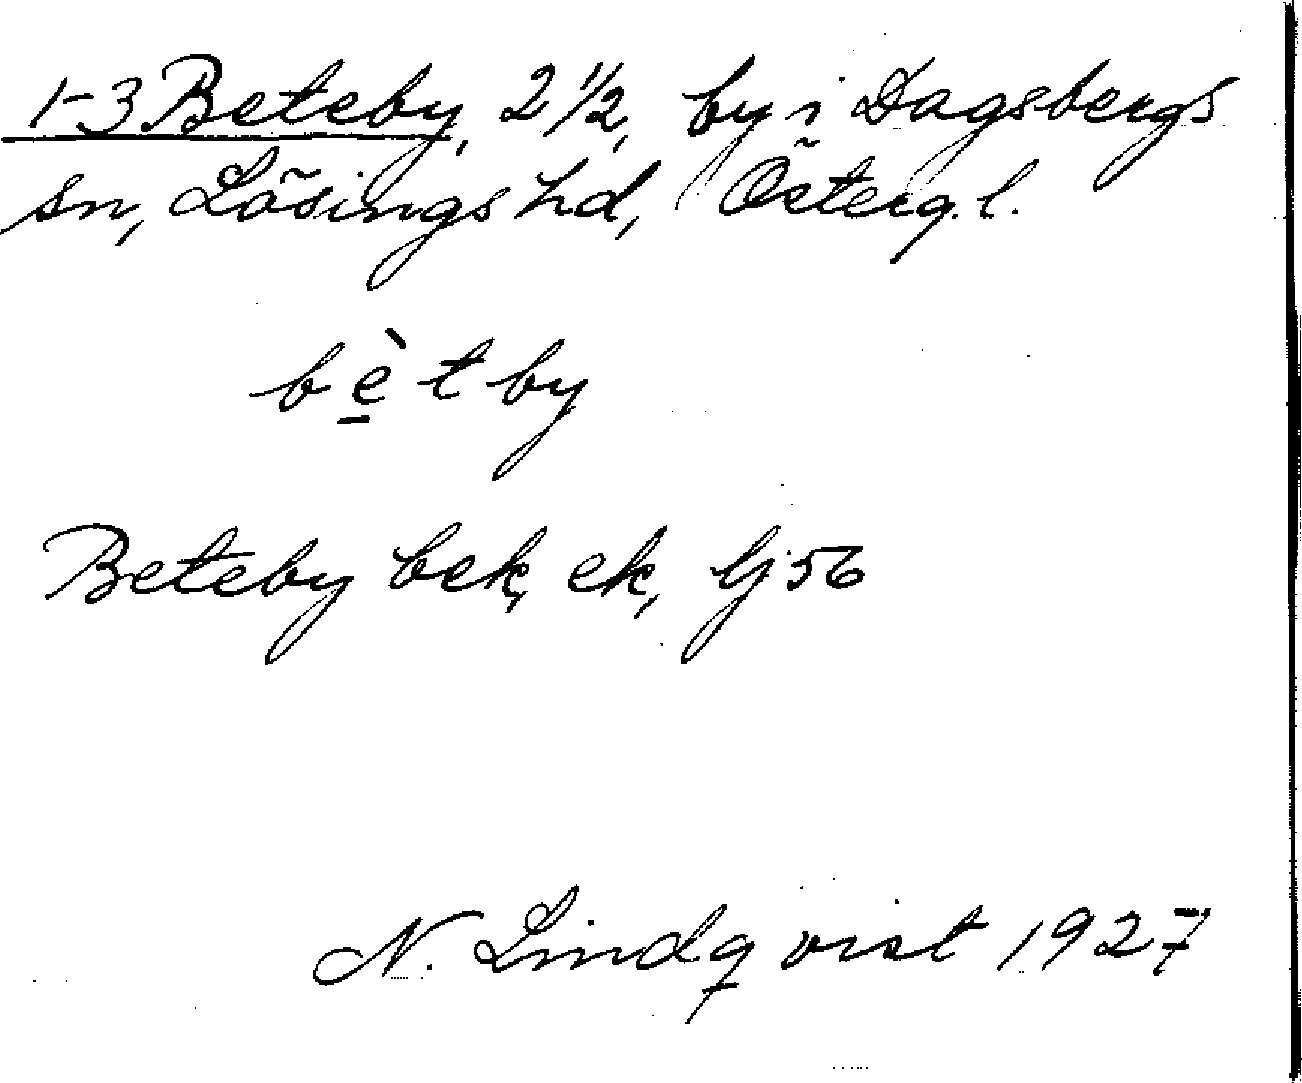 1-3 Beteby, 2 1/2, by i Dagsbergs
sn, Lösings hd, Östergl.
bè̱tby
Beteby bek, ek, Gj 56
N. Lindqvist 1927